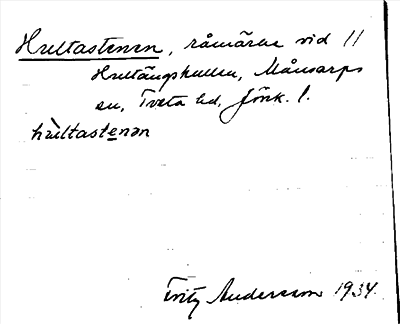 Hultastenen, råmärke vid ||
Hultängskullen, Månsarps
sn, Tveta hd, Jönk. l.
hu̇̀ltastenən
Fritz Andersson 1934.